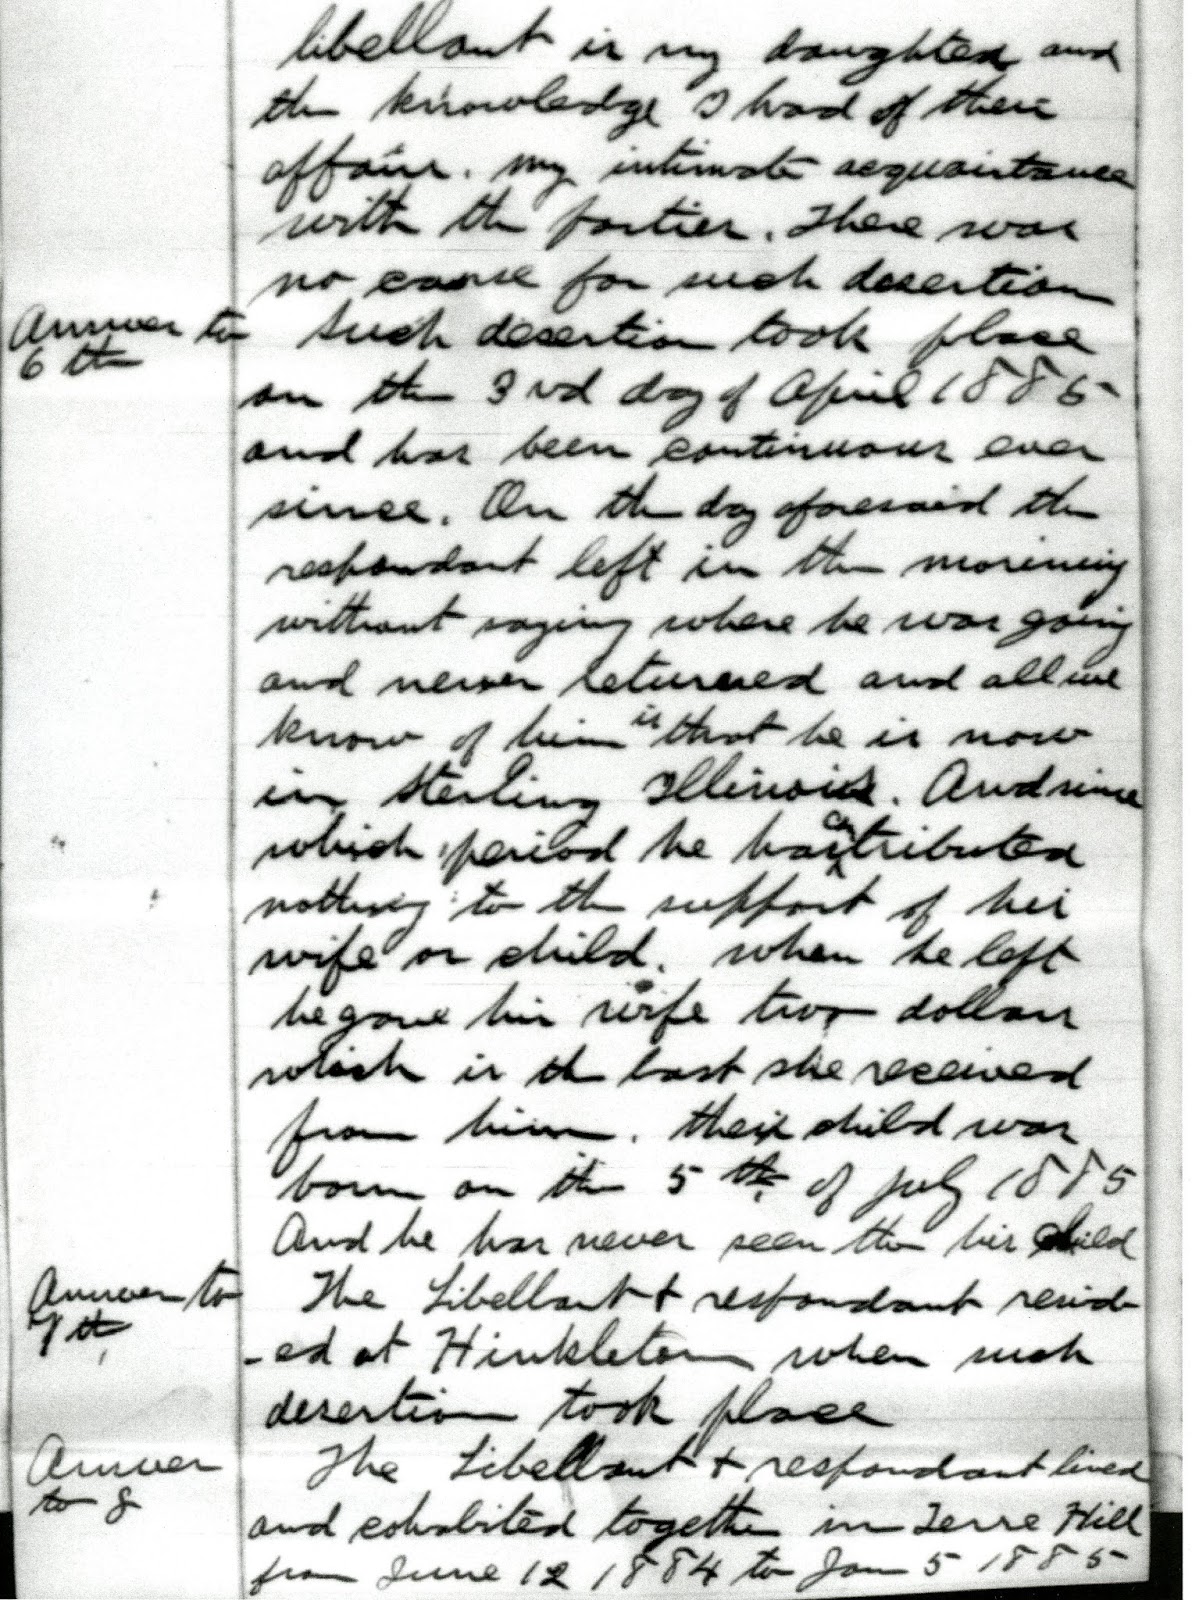 libellant is my daughter and
the knowledge I had of their
affairs. my intimate acquaintance
with the parties. There was
no cause for such desertion
Answer to 6th
Such desertion took place
on the 3rd day of April 1885
and has been continuous ever
since. On the day aforesaid the
respondant left in the morining
without saying where he was going
and never returned and all we
know of him is that he is now
in Sterling Illinois. And since
which period he has contributed
nothing to the support of his
wife or child. when he left
he gave his wife two dollars
which is the last she received
from him. their child was
born on the 5th of July 1885
And he has never seen the his child
Answer to 7th
The Libellant + respondant resid-
-ed at Hinkleton when such
desertion took place
Answer to 8
The Libellant + respondant lived
and cohabited together in Terre Hill
from June 12 1884 to Jan 5 1885